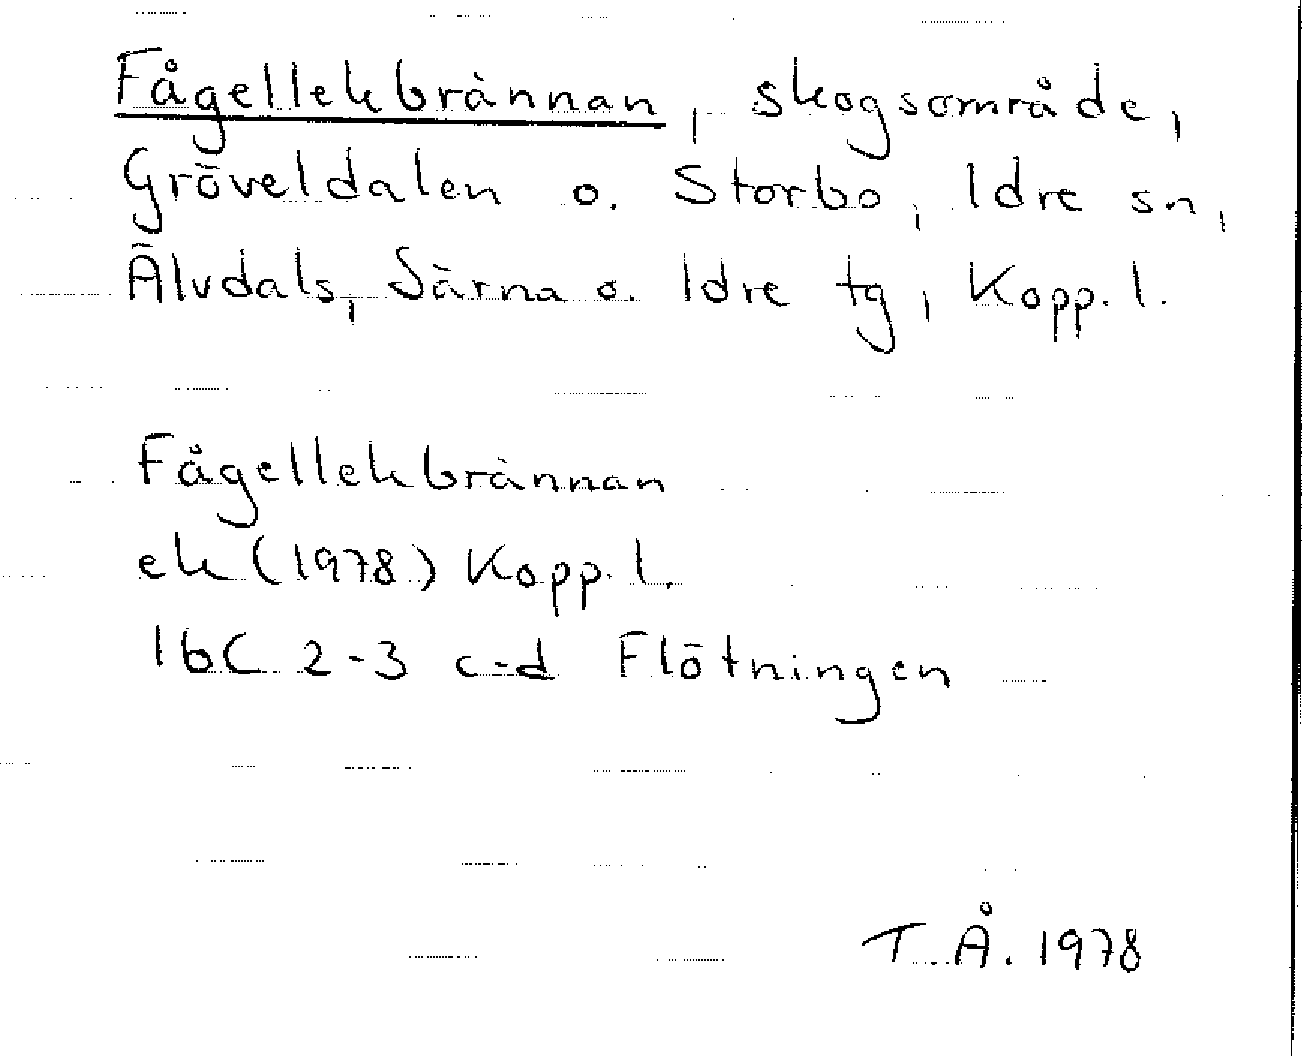 Fågellekbrännan, skogsområde,
Gröveldalen o. Storbo, Idre sn,
Älvdals, Särna o. Idre tg, Kopp. l.
Fågellekbrännan
ek (1978) Kopp. l.
16C 2-3 c-d Flötningen
T. Å. 1978